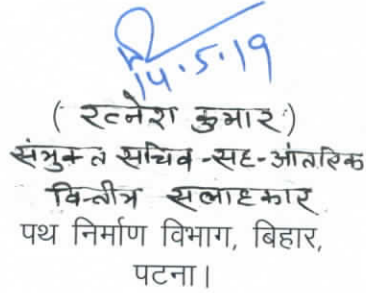 14.5.19
( रत्नेश कुमार )
संयुक्त सचिव-सह-आंतरिक
वित्तीय सलाहकार
पथ निर्माण विभाग, बिहार,
पटना।